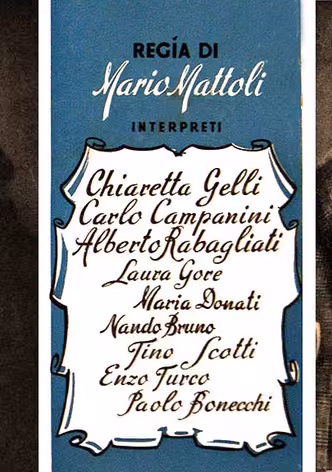 REGÍA DI
Mario Mattoli
INTERPRETI
Chiaretta Gelli
Carlo Campanini
Alberto Rabagliati
Laura Gore
Maria Donati
Nando Bruno
Tino Scotti
Enzo Turco
Paolo Bonecchi